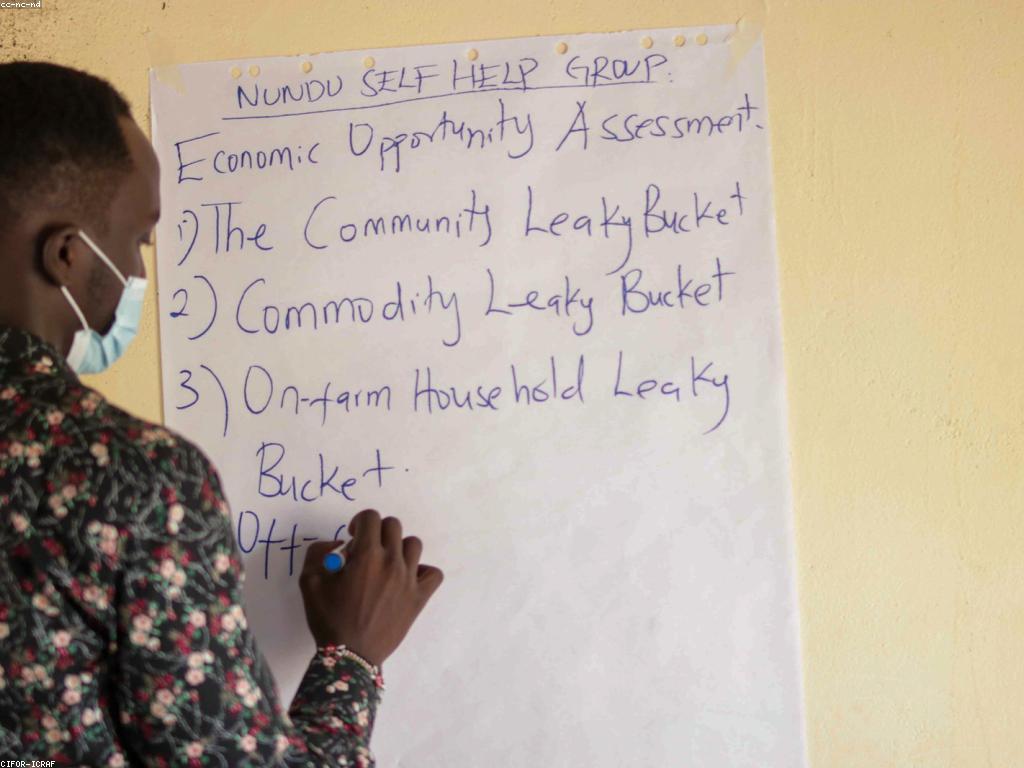 cc-nc-nd
NUNDU SELF HELP GROUP.
Economic Opportunity Assessment.
1) The Community Leaky Bucket
2) Commodity Leaky Bucket
3) On-farm Household Leaky
Bucket.
Off-
CIFOR-ICRAF